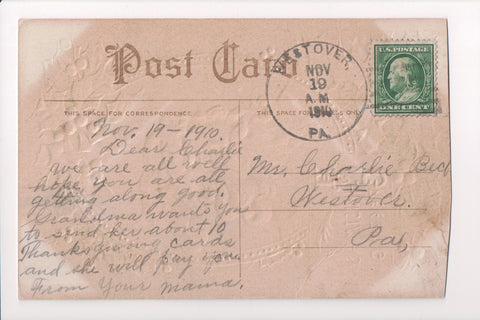 Post Card
WESTOVER,
NOV
19
A.M
1910
PA.
U.S. POSTAGE
ONE CENT
THIS SPACE FOR CORRESPONDENCE
Nov. 19-1910.
Dear Charlie
we are all well
hope you are all
getting along good.
Grandma wants you
to send her about 10
Thanksgiving cards
and she will pay you
From Your mama.
Mr. Charlie
Westover.
Pa,